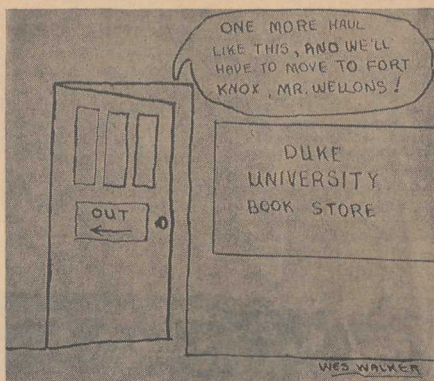 ONE MORE HAUL
LIKE THIS, AND WE'LL
HAVE TO MOVE TO FORT
KNOX, MR. WELLONS!
DUKE
UNIVERSITY
BOOK STORE
OUT
WES WALKER